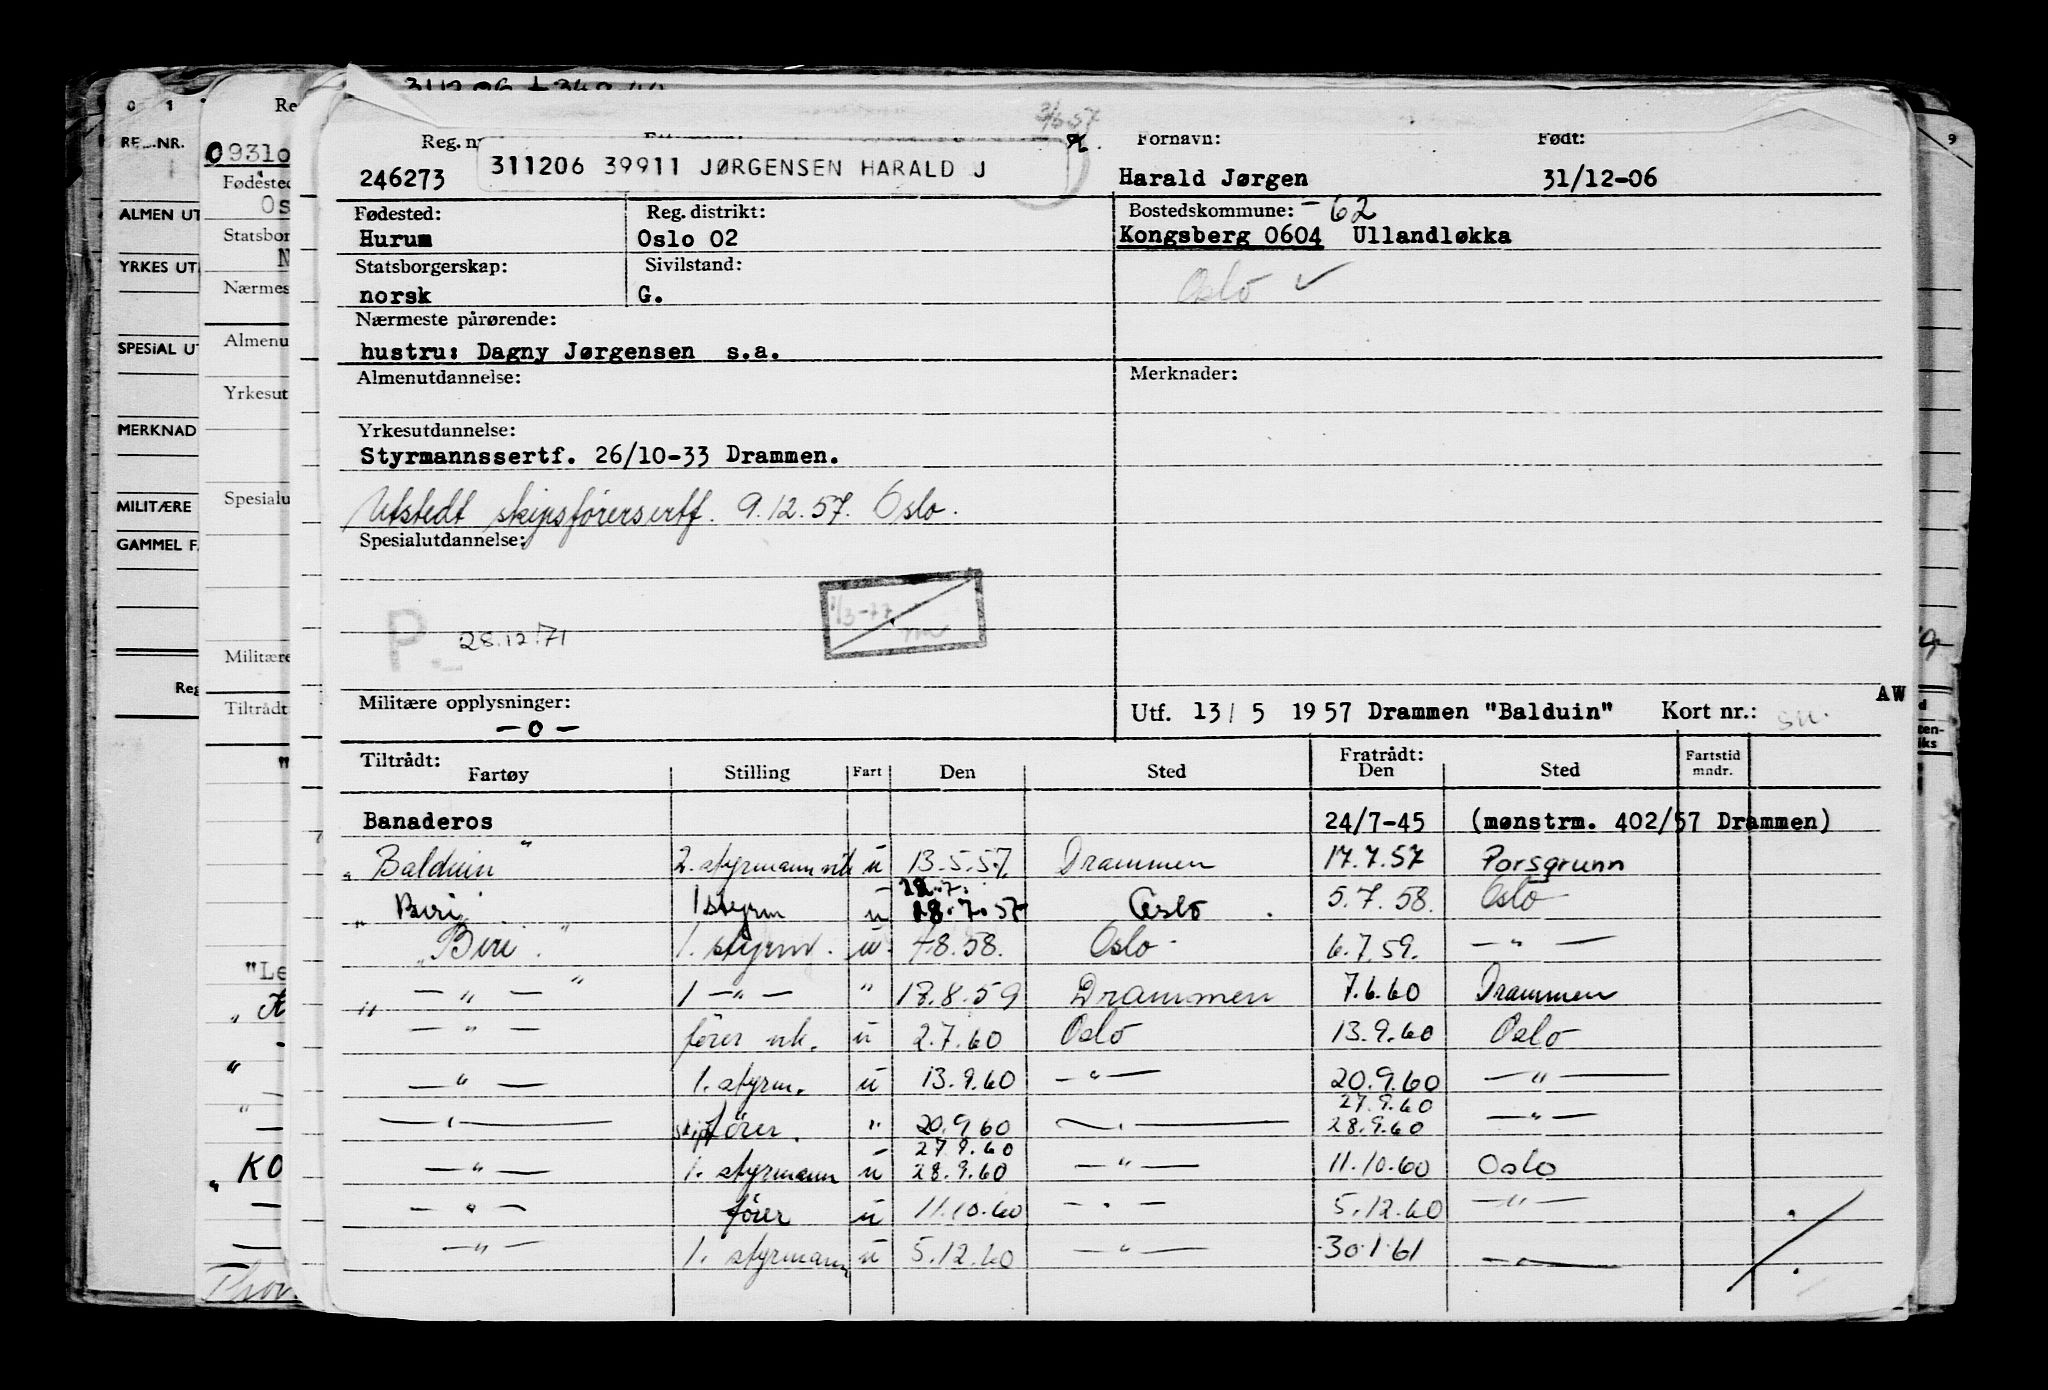 311206 + 368
0 1
Re
REG.NR.
09310
Fødested
Os
ALMEN UT
Statsbor
N
YRKES UT
Nærmes
SPESIAL UT
Almenu
Yrkesut
MERKNAD
MILITÆRE
Spesialu
GAMMEL F
Militære
Reg
Tiltrådt
"Le
KO
Thor
9
Reg. n Fornavn: Født:
246273 311206 39911 JØRGENSEN HARALD J Harald Jørgen 31/12-06
Fødested: Reg. distrikt: Bostedskommune: -62
Hurum Oslo 02 Kongsberg 0604 Ullandløkka
Statsborgerskap: Sivilstand: Oslo ✓
norsk G.
Nærmeste pårørende:
hustru: Dagny Jørgensen s.a.
Almenutdannelse: Merknader:
Yrkesutdannelse:
Styrmannssertf. 26/10-33 Drammen.
Utstedt skipsførersertf. 9.12.57. Oslo.
Spesialutdannelse:
1/3-77
P. 28.12.71
Militære opplysninger: AW
-0- Utf. 13/5 1957 Drammen "Balduin" Kort nr.:
Tiltrådt: Fratrådt:
Fartøy Stilling Fart Den Sted Den Sted Fartstid mndr.
Banaderos 24/7-45 (mønstrm. 402/57 Drammen)
" Balduin " 2. styrmann nk u 13.5.57. Drammen 17.7.57 Porsgrunn
22.7.
" Biri " 1 styrm u 18.7.57 Oslo. 5.7.58. Oslo
" Biri " 1. styrm. u 4.8.58. Oslo - 6.7.59. — " —
" — " — " 1 — " — " 18.8.59 Drammen 7.6.60 Drammen
— " — fører nk. u 2.7.60 Oslo 13.9.60 Oslo
— " — 1. styrm. u 13.9.60 — " — 20.9.60 — " —
27.9.60
— " — skipsfører. " 20.9.60 — " — 28.9.60 — " —
27.9.60
— " — 1. styrmann u 28.9.60 — " — 11.10.60 Oslo
— " — fører u 11.10.60 — " — 5.12.60 — " —
— " — 1. styrmann u 5.12.60 — " — 30.1.61 — " —